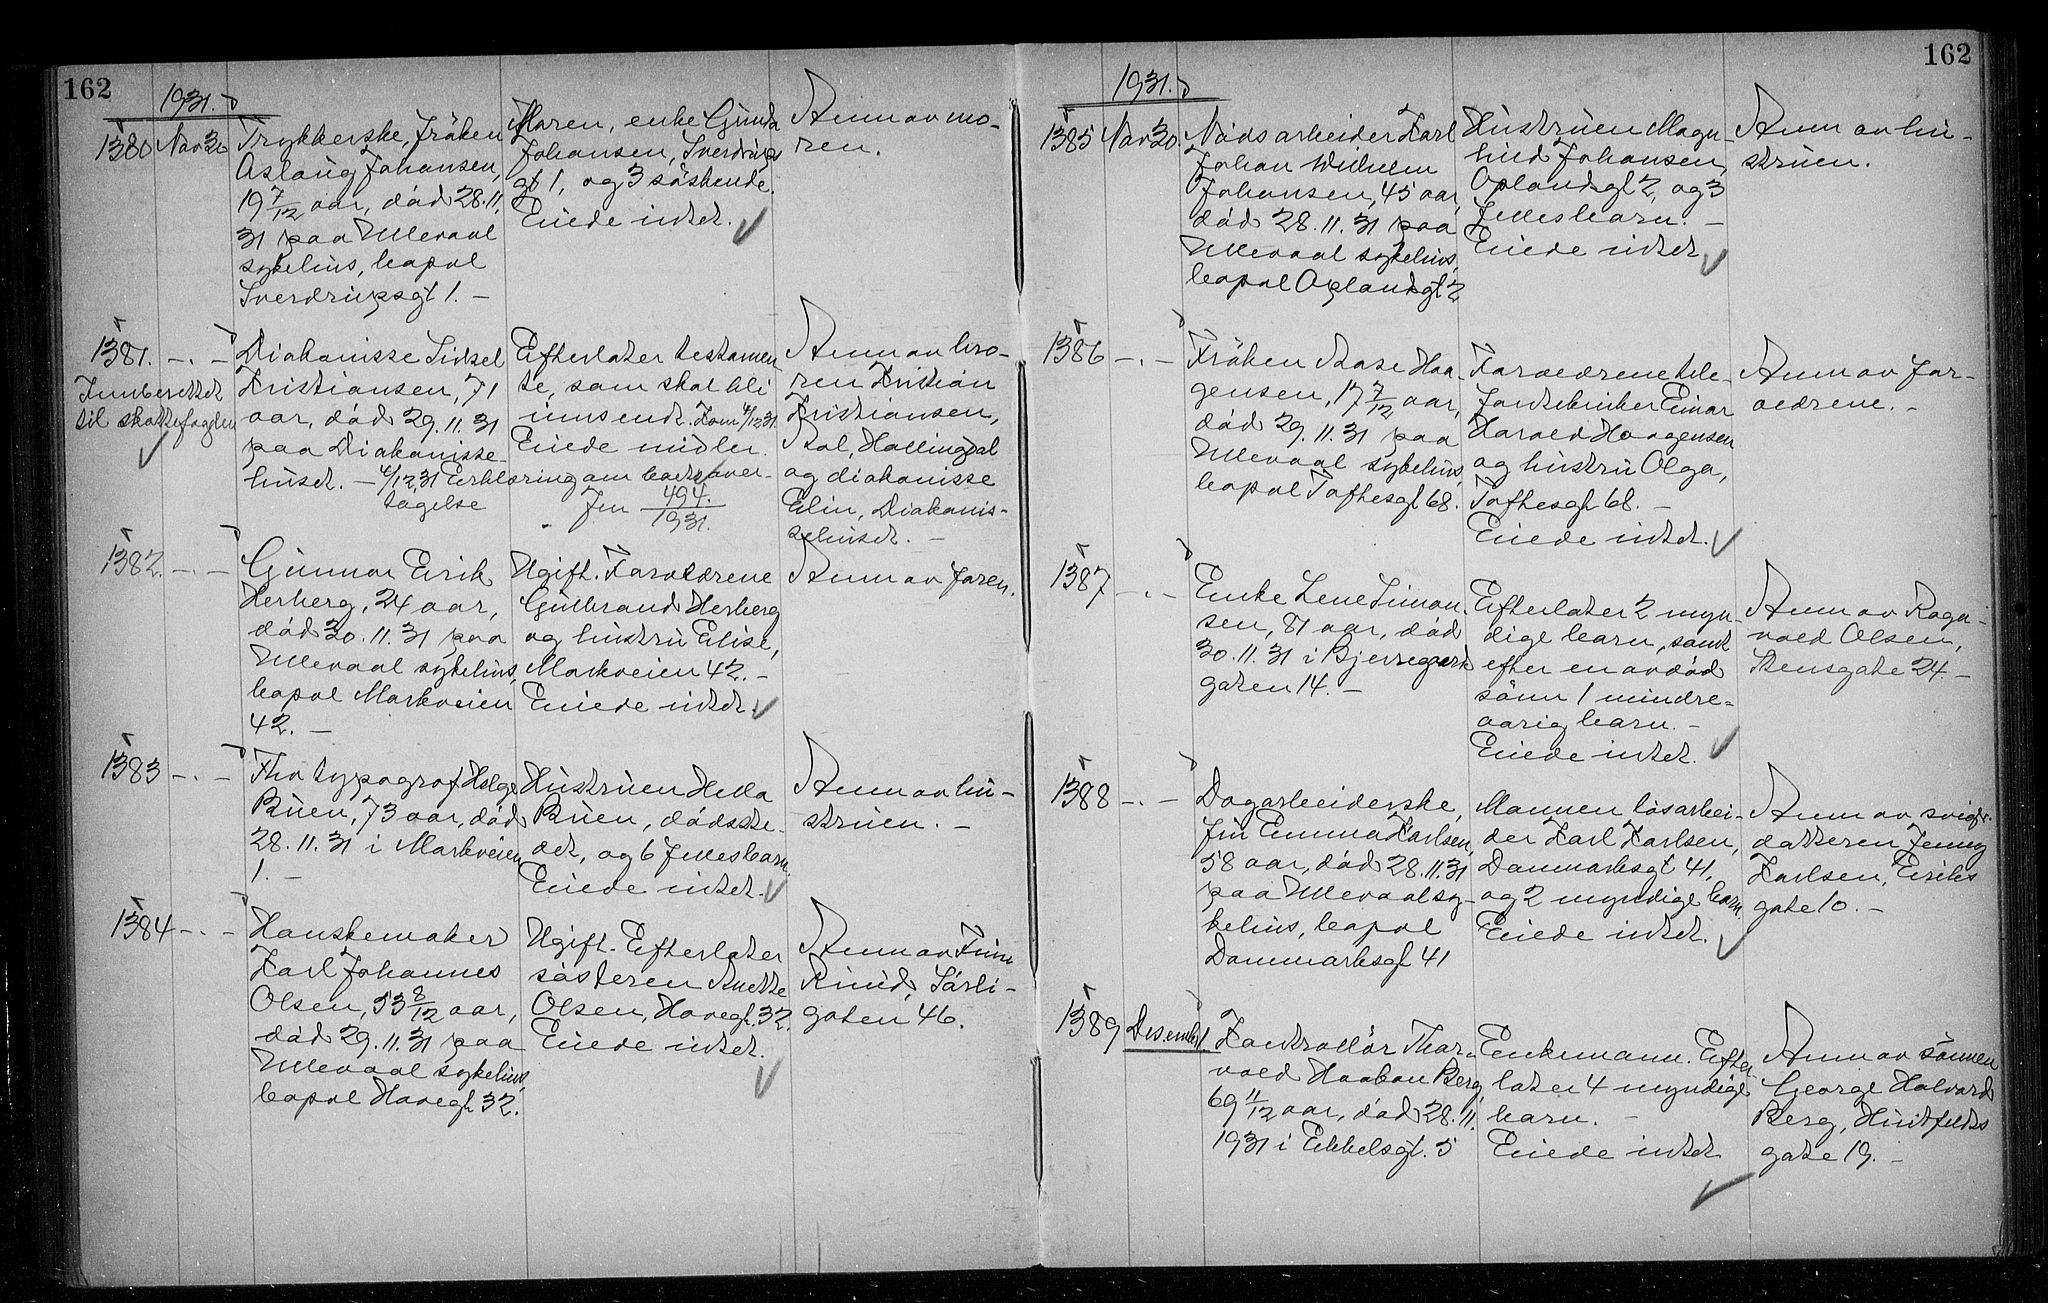 162
1931.
1380 Nov 30
Trykkerske, fröken
Aslaug Johansen,
19 7/12 aar, död 28.11.
31 paa Ullevaal
sykehus, bopæl
Sverdrupsgt 1. –
Moren, enke Gunda
Johansen, Sverdrups
gt 1, og 3 söskende.
Eiede intet.
Anm av mo-
ren.
1381. – . –
Innberettet
til skattefogden
Diakonisse Sidsel
Kristiansen, 71
aar, död 29.11.31
paa Diakonisse-
huset. – 4/12 31 Erklæring om bets over-
tagelse
Efterlater testamen
te, som skal bli
innsendt. Kom 4/12 31.
Eiede midler.
Jnr 494./1931.
Anm av bro-
ren Kristian
Kristiansen,
Aal, Hallingdal
og diakonisse
Elin, Diakonis-
sehuset. –
1382. – . –
Gunnar Eirik
Herberg, 24 aar,
död 30.11.31 paa
Ullevaal sykehus,
bopæl Markveien
42. –
Ugift. Forældrene
Gulbrand Herberg
og hustru Elise,
Markveien 42. –
Eiede intet.
Anm av faren.
1383 – . –
Fhv typograf Helge
Buen, 73 aar, död
28.11.31 i Markveien
1. –
Hustruen Hella
Buen, dödsste-
det, og 6 fellesbarn.
Eiede intet.
Anm av hu-
struen. –
1384 – . –
Hanskemaker
Karl Johannes
Olsen, 53 8/12 aar,
död 29.11.31 paa
Ullevaal sykehus,
bopæl Havegt. 32.
Ugift. Efterlater
sösteren Anette
Olsen, Havegt. 32.
Eiede intet.
Anm av Finn
Ruud, Sarli-
gaten 46.
162
1931.
1385 Nov 30.
Nödsarbeider Karl
Johan Wilhelm
Johansen, 45 aar,
död 28.11.31 paa
Ullevaal sykehus,
bopæl Oplandgt 2
Hustruen Magn-
hild Johansen,
Oplandgt 2, og 3
fellesbarn. –
Eiede intet.
Anm av hu-
struen.
1386 – . –
Fröken Aase Haa-
gensen, 17 7/12 aar,
död 29.11.31 paa
Ullevaal sykehus,
bopæl Toftesgt 68.
Forældrene tele-
fontekniker Einar
Harald Haagensen
og hustru Olga,
Toftesgt 68. –
Eiede intet.
Anm av for-
ældrene. –
1387 – . –
Enke Lene Simon-
sen, 81 aar, död
30.11.31 i Bjerregaard
gaten 14. –
Efterlater 2 myn-
dige barn, samt
efter en avdöd
sönn 1 mindre-
aarig barn. –
Eiede intet.
Anm av Ragn-
vald Olsen,
Stensgate 24 –
1388 – . –
Dagarbeiderske,
fru Emma Karlsen,
58 aar, död 28.11.31
paa Ullevaal sy-
kehus, bopæl
Danmarksgt 41
Mannen lösarbei-
der Karl Karlsen,
Danmarksgt 41,
og 2 myndige barn.
Eiede intet.
Anm av sviger-
datteren Jenny
Karlsen, Eiriks
gate 10. –
1389 Desember 1
Kontrollör Thor-
vald Haakon Berg,
69 11/12 aar, död 28.11.
1931 i Eckelsgt. 5
Enkemann. Efter
later 4 myndige
barn. –
Eiede intet
Anm av sönnen
George Halvard
Berg, Huitfeldts
gate 19. –